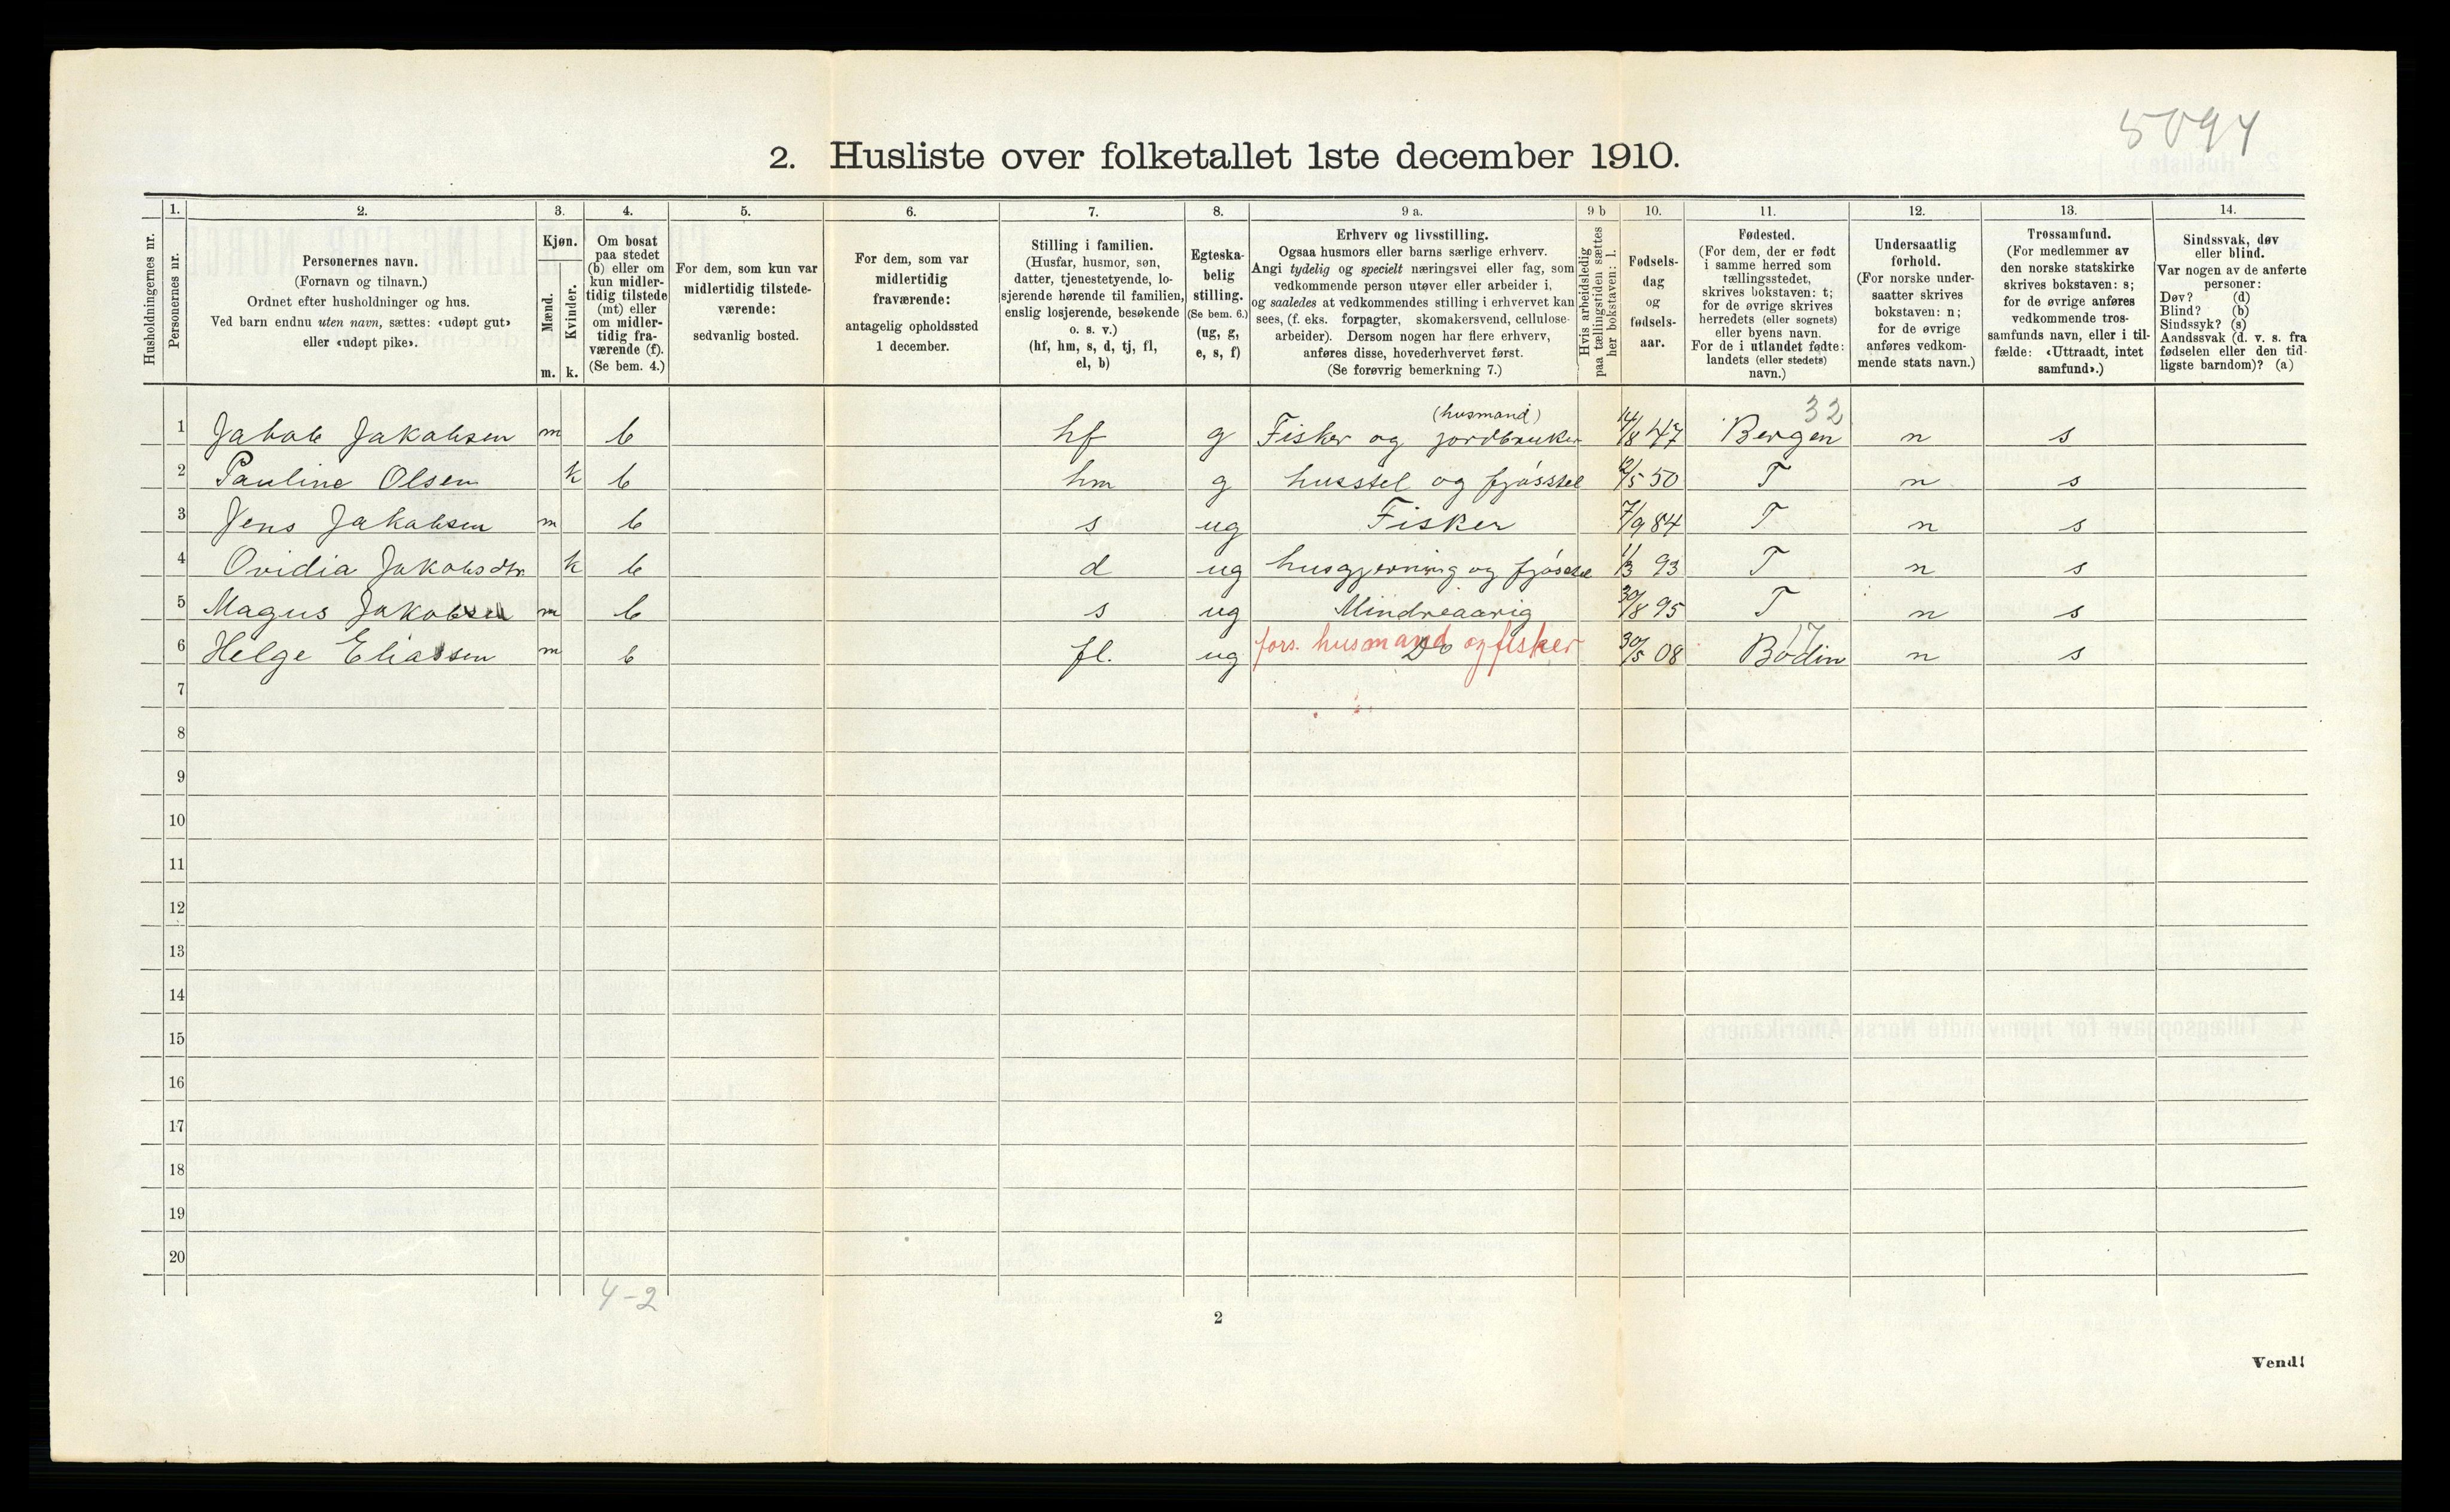 5094
2. Husliste over folketallet 1ste december 1910.
Husholdningernes nr.
1.
Personernes nr.
2.
Personernes navn.
(Fornavn og tilnavn.)
Ordnet efter husholdninger og hus.
Ved barn endnu uten navn, sættes: «udøpt gut»
eller «udøpt pike».
3.
Kjøn.
Mænd.
Kvinder.
m. k.
4.
Om bosat
paa stedet
(b) eller om
kun midler-
tidig tilstede
(mt) eller
om midler-
tidig fra-
værende (f).
(Se bem. 4.)
5.
For dem, som kun var
midlertidig tilstede-
værende:
sedvanlig bosted.
6.
For dem, som var
midlertidig
fraværende:
antagelig opholdssted
1 december.
7.
Stilling i familien.
(Husfar, husmor, søn,
datter, tjenestetyende, lo-
sjerende hørende til familien,
enslig losjerende, besøkende
o. s. v.)
(hf, hm, s, d, tj, fl,
el, b)
8.
Egteska-
belig
stilling.
(Se bem. 6.)
(ug, g,
e, s, f)
9 a.
Erhverv og livsstilling.
Ogsaa husmors eller barns særlige erhverv.
Angi tydelig og specielt næringsvei eller fag, som
vedkommende person utøver eller arbeider i,
og saaledes at vedkommendes stilling i erhvervet kan
sees, (f. eks. forpagter, skomakersvend, cellulose-
arbeider). Dersom nogen har flere erhverv,
anføres disse, hovederhvervet først.
(Se forøvrig bemerkning 7.)
9 b
Hvis arbeidsledig
paa tællingstiden sættes
her bokstaven: l.
10.
Fødsels-
dag
og
fødsels-
aar.
11.
Fødested.
(For dem, der er født
i samme herred som
tællingsstedet,
skrives bokstaven: t;
for de øvrige skrives
herredets (eller sognets)
eller byens navn.
For de i utlandet fødte:
landets (eller stedets)
navn.)
12.
Undersaatlig
forhold.
(For norske under-
saatter skrives
bokstaven: n;
for de øvrige
anføres vedkom-
mende stats navn.)
13.
Trossamfund.
(For medlemmer av
den norske statskirke
skrives bokstaven: s;
for de øvrige anføres
vedkommende tros-
samfunds navn, eller i til-
fælde: «Uttraadt, intet
samfund».)
14.
Sindssvak, døv
eller blind.
Var nogen av de anførte
personer:
Døv? (d)
Blind? (b)
Sindssyk? (s)
Aandssvak (d. v. s. fra
fødselen eller den tid-
ligste barndom)? (a)
(husmand) 32
1 Jakob Jakobsen m b hf g Fisker og jordbruker 14/8 47 Bergen n s
2 Pauline Olsen k b hm g husstel og fjósstel 12/5 50 T n s
3 Jens Jakobsen m b s ug Fisker 7/9 84 T n s
4 Ovidia Jakobsdtr. k b d ug husgjerning og fjósstel 1/3 93 T n s
5 Magus Jakobsen m b s ug Mindreaarig 30/8 95 T n s
17
6 Helge Eliassen m b fl. ug Do fors. husmand og fisker 30/5 08 Bodin n s
7
8
9
10
11
12
13
14
15
16
17
18
19
20
4-2
2
Vend!